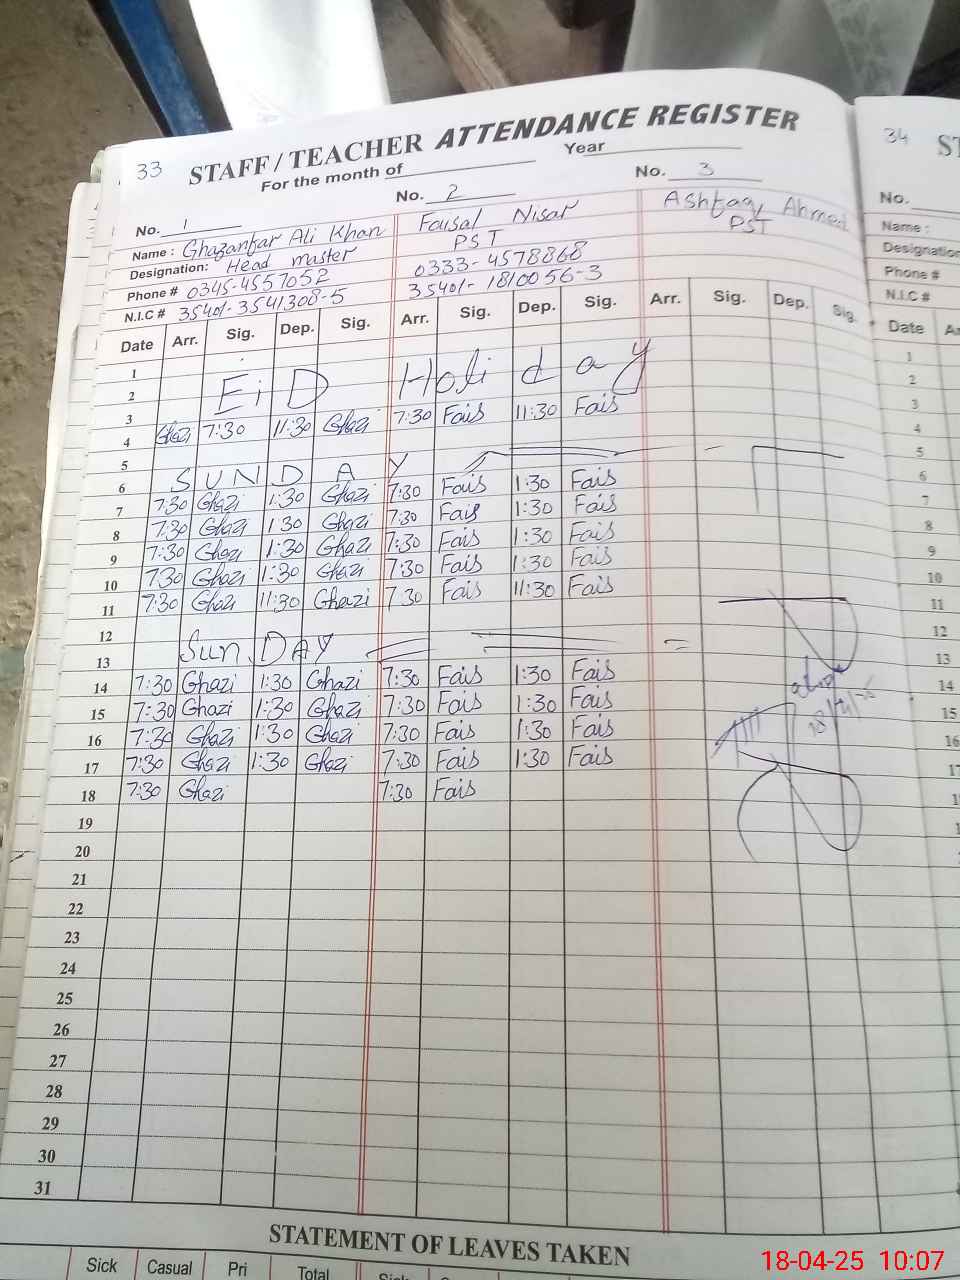 33 STAFF / TEACHER ATTENDANCE REGISTER
For the month of Year
No. 1 No. 2 No. 3
Name : Ghazanfar Ali Khan Faisal Nisar Ashfaq Ahmed
Designation: Head master PST PST
Phone # 0345-4557052 0333-4578868
N.I.C # 35401-3541308-5 35401-1810056-3
Date Arr. Sig. Dep. Sig. Arr. Sig. Dep. Sig. Arr. Sig. Dep. Sig.
1
2 EiD Holiday
3
4 Ghazi 7:30 11:30 Ghazi 7:30 Fais 11:30 Fais
5
6 SUNDAY
7 7:30 Ghazi 1:30 Ghazi 7:30 Fais 1:30 Fais
8 7:30 Ghazi 1:30 Ghazi 7:30 Fais 1:30 Fais
9 7:30 Ghazi 1:30 Ghazi 7:30 Fais 1:30 Fais
10 7:30 Ghazi 1:30 Ghazi 7:30 Fais 1:30 Fais
11 7:30 Ghazi 11:30 Ghazi 7:30 Fais 11:30 Fais
12
13 Sun.DAY
14 7:30 Ghazi 1:30 Ghazi 7:30 Fais 1:30 Fais
15 7:30 Ghazi 1:30 Ghazi 7:30 Fais 1:30 Fais
16 7:30 Ghazi 1:30 Ghazi 7:30 Fais 1:30 Fais
17 7:30 Ghazi 1:30 Ghazi 7:30 Fais 1:30 Fais
18 7:30 Ghazi 7:30 Fais
19
20
21
22
23
24
25
26
27
28
29
30
31
STATEMENT OF LEAVES TAKEN
Sick Casual Pri Total Sick
34 ST
No.
Name :
Designation
Phone #
N.I.C #
Date
1
2
3
4
5
6
7
8
9
10
11
12
13
14
15
16
17
18-04-25 10:07